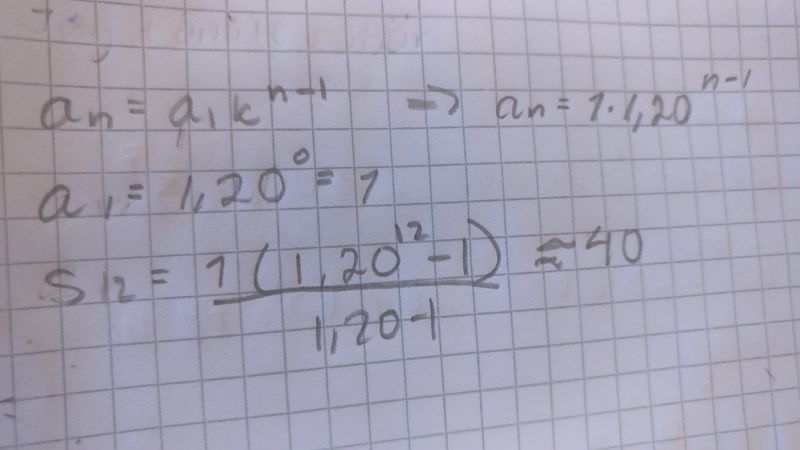 aₙ = a₁kⁿ⁻¹ → aₙ = 1·1,20ⁿ⁻¹
a₁ = 1,20⁰ = 1
S₁₂ = 1(1,20¹² - 1) / 1,20-1 ≈ 40